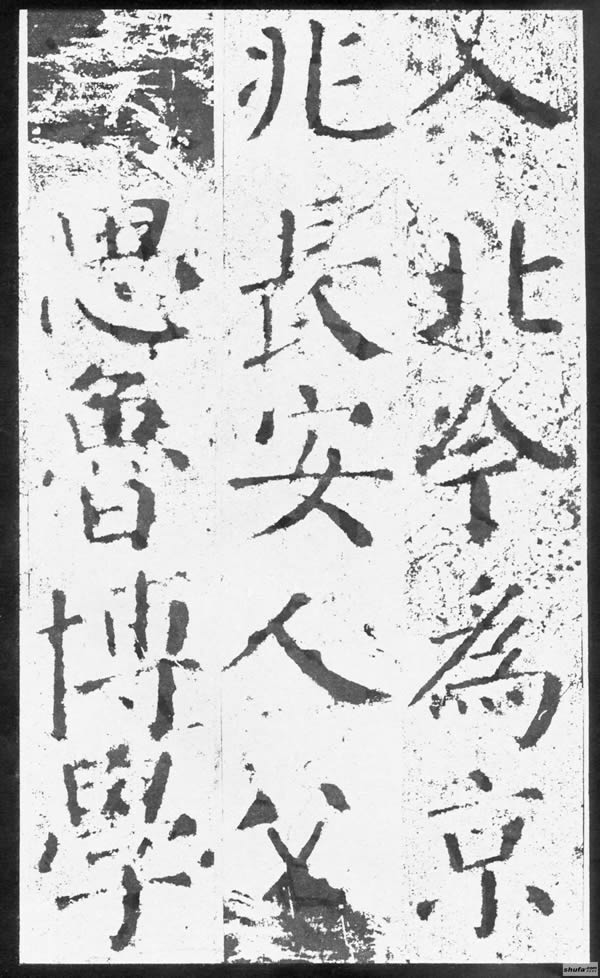 入北今為京
兆長安人父
思魯博學
shufa